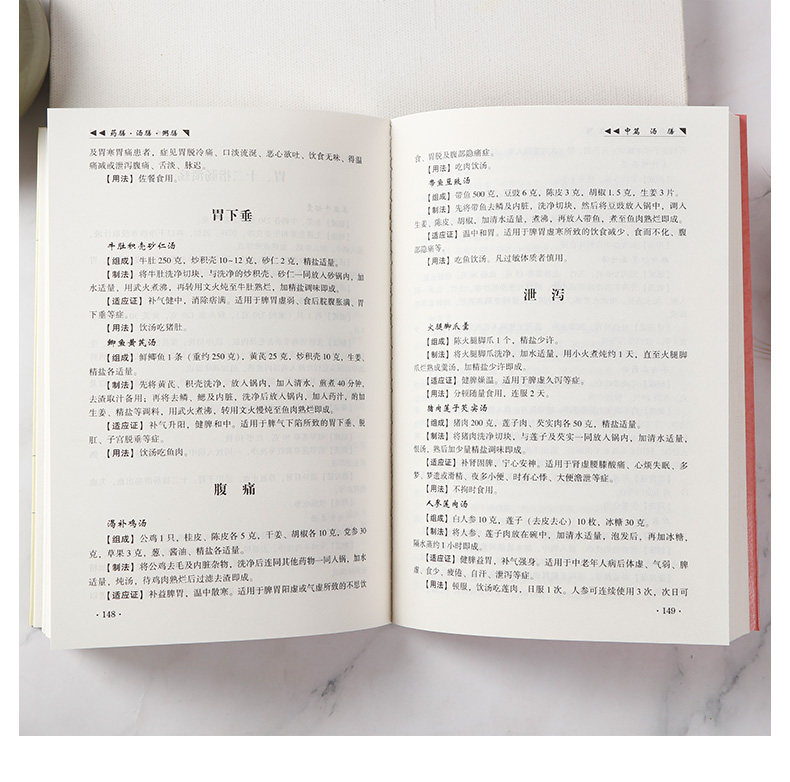 药膳·汤膳·粥膳
及胃寒胃痛患者，症见胃脘冷痛、口淡流涎、恶心欲吐、饮食无味、得温
痛减或泄泻腹痛、舌淡、脉迟。
【用法】佐餐食用。
胃下垂
牛肚枳壳砂仁汤
【组成】牛肚 250 克，炒枳壳 10~12 克，砂仁 2 克，精盐适量。
【制法】将牛肚洗净切块，与洗净的炒枳壳、砂仁一同放入砂锅内，加
水适量，用武火煮沸，再转用文火炖至牛肚熟烂，加精盐调味即成。
【适应证】补气健中，消除痞满。适用于脾胃虚弱、食后脘腹胀满、胃
下垂等症。
【用法】饮汤吃猪肚。
鲫鱼黄芪汤
【组成】鲜鲫鱼 1 条（重约 250 克），黄芪 25 克，炒枳壳 10 克，生姜、
精盐各适量。
【制法】先将黄芪、枳壳洗净，放入锅内，加入清水，煎煮 40 分钟，
去渣取汁备用；再将去鳞、鳃及内脏，洗净后放入锅内，加入药汁，酌加
生姜、精盐等调料，用武火煮沸，转用文火慢炖至鱼肉熟烂即成。
【适应证】补气升阳，健脾和中。适用于脾气下陷所致的胃下垂、脱
肛、子宫脱垂等症。
【用法】饮汤吃鱼肉。
腹 痛
温补鸡汤
【组成】公鸡 1 只，桂皮、陈皮各 5 克，干姜、胡椒各 10 克，党参 30
克，草果 3 克，葱、酱油、精盐各适量。
【制法】将公鸡去毛及内脏杂物，洗净后连同其他药物一同入锅，加水
适量，炖汤，待鸡肉熟烂后过滤去渣即成。
【适应证】补益脾胃，温中散寒。适用于脾胃阳虚或气虚所致的不思饮
·148·
中篇 汤 膳
食、胃脘及腹部隐痛症。
【用法】吃肉饮汤。
带鱼豆豉汤
【组成】带鱼 500 克，豆豉 6 克，陈皮 3 克，胡椒 1.5 克，生姜 3 片。
【制法】先将带鱼去鳞及内脏，洗净切块，然后将豆豉放入锅中，调入
生姜、陈皮、胡椒，加清水适量，煮沸，再放入带鱼，煮至鱼肉熟烂即成。
【适应证】温中和胃。适用于脾胃虚寒所致的饮食减少、食而不化、腹
部隐痛等。
【用法】吃鱼饮汤。凡过敏体质者慎用。
泄 泻
火腿脚爪羹
【组成】陈火腿脚爪 1 个，精盐少许。
【制法】将火腿脚爪洗净，加水适量，用小火煮炖约 1 天，直至火腿脚
爪烂熟成羹汤，加精盐少许即成。
【适应证】健脾燥温。适用于脾虚久泻等症。
【用法】分顿随量食用，连服 2 天。
猪肉莲子芡实汤
【组成】猪肉 200 克，莲子肉、芡实肉各 50 克，精盐适量。
【制法】将猪肉洗净切块，与莲子及芡实一同放入锅内，加清水适量，
煨汤，熟后加少量精盐调味即成。
【适应证】补肾固脾，宁心安神。适用于肾虚腰膝酸痛、心烦失眠、多
梦、梦遗或滑精、夜多小便、时有心悸、大便溏泄等症。
【用法】不拘时食用。
人参莲肉汤
【组成】白人参 10 克，莲子（去皮去心）10 枚，冰糖 30 克。
【制法】将人参、莲子肉放在碗中，加清水适量，泡发后，再加冰糖，
隔水蒸约 1 小时即成。
【适应证】健脾益胃，补气强身。适用于中老年人病后体虚、气弱、脾
虚、食少、疲倦、自汗、泄泻等症。
【用法】顿服，饮汤吃莲肉，日服 1 次。人参可连续使用 3 次，次日可
149·